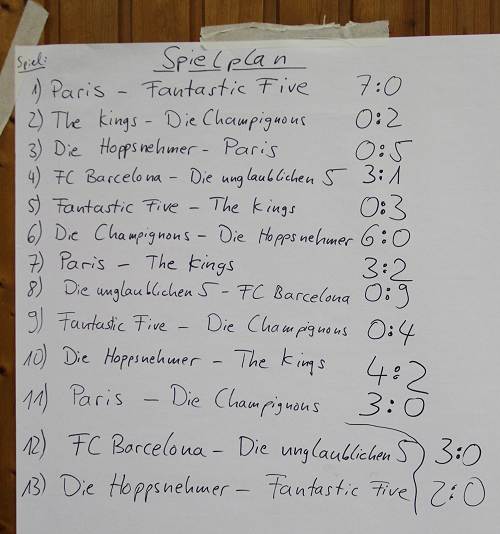 Spiel: Spielplan
1) Paris - Fantastic Five 7:0
2) The Kings - Die Champignons 0:2
3) Die Hoppsnehmer - Paris 0:5
4) FC Barcelona - Die unglaublichen 5 3:1
5) Fantastic Five - The Kings 0:3
6) Die Champignons - Die Hoppsnehmer 6:0
7) Paris - The Kings 3:2
8) Die unglaublichen 5 - FC Barcelona 0:9
9) Fantastic Five - Die Champignons 0:4
10) Die Hoppsnehmer - The Kings 4:2
11) Paris - Die Champignons 3:0
12) FC Barcelona - Die unglaublichen 5 3:0
13) Die Hoppsnehmer - Fantastic Five 2:0